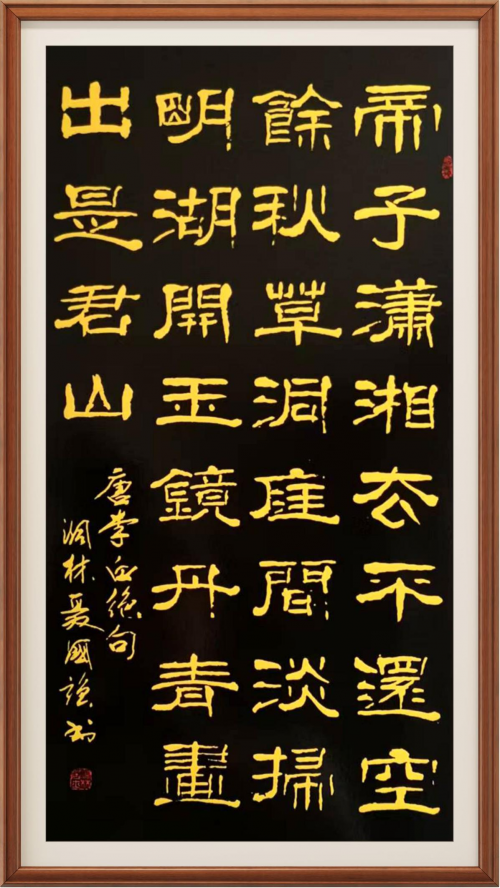 帝子瀟湘去不還空
餘秋草洞庭間淡掃
明湖開玉鏡丹青畫
出是君山
唐李白絕句
林聂國強书